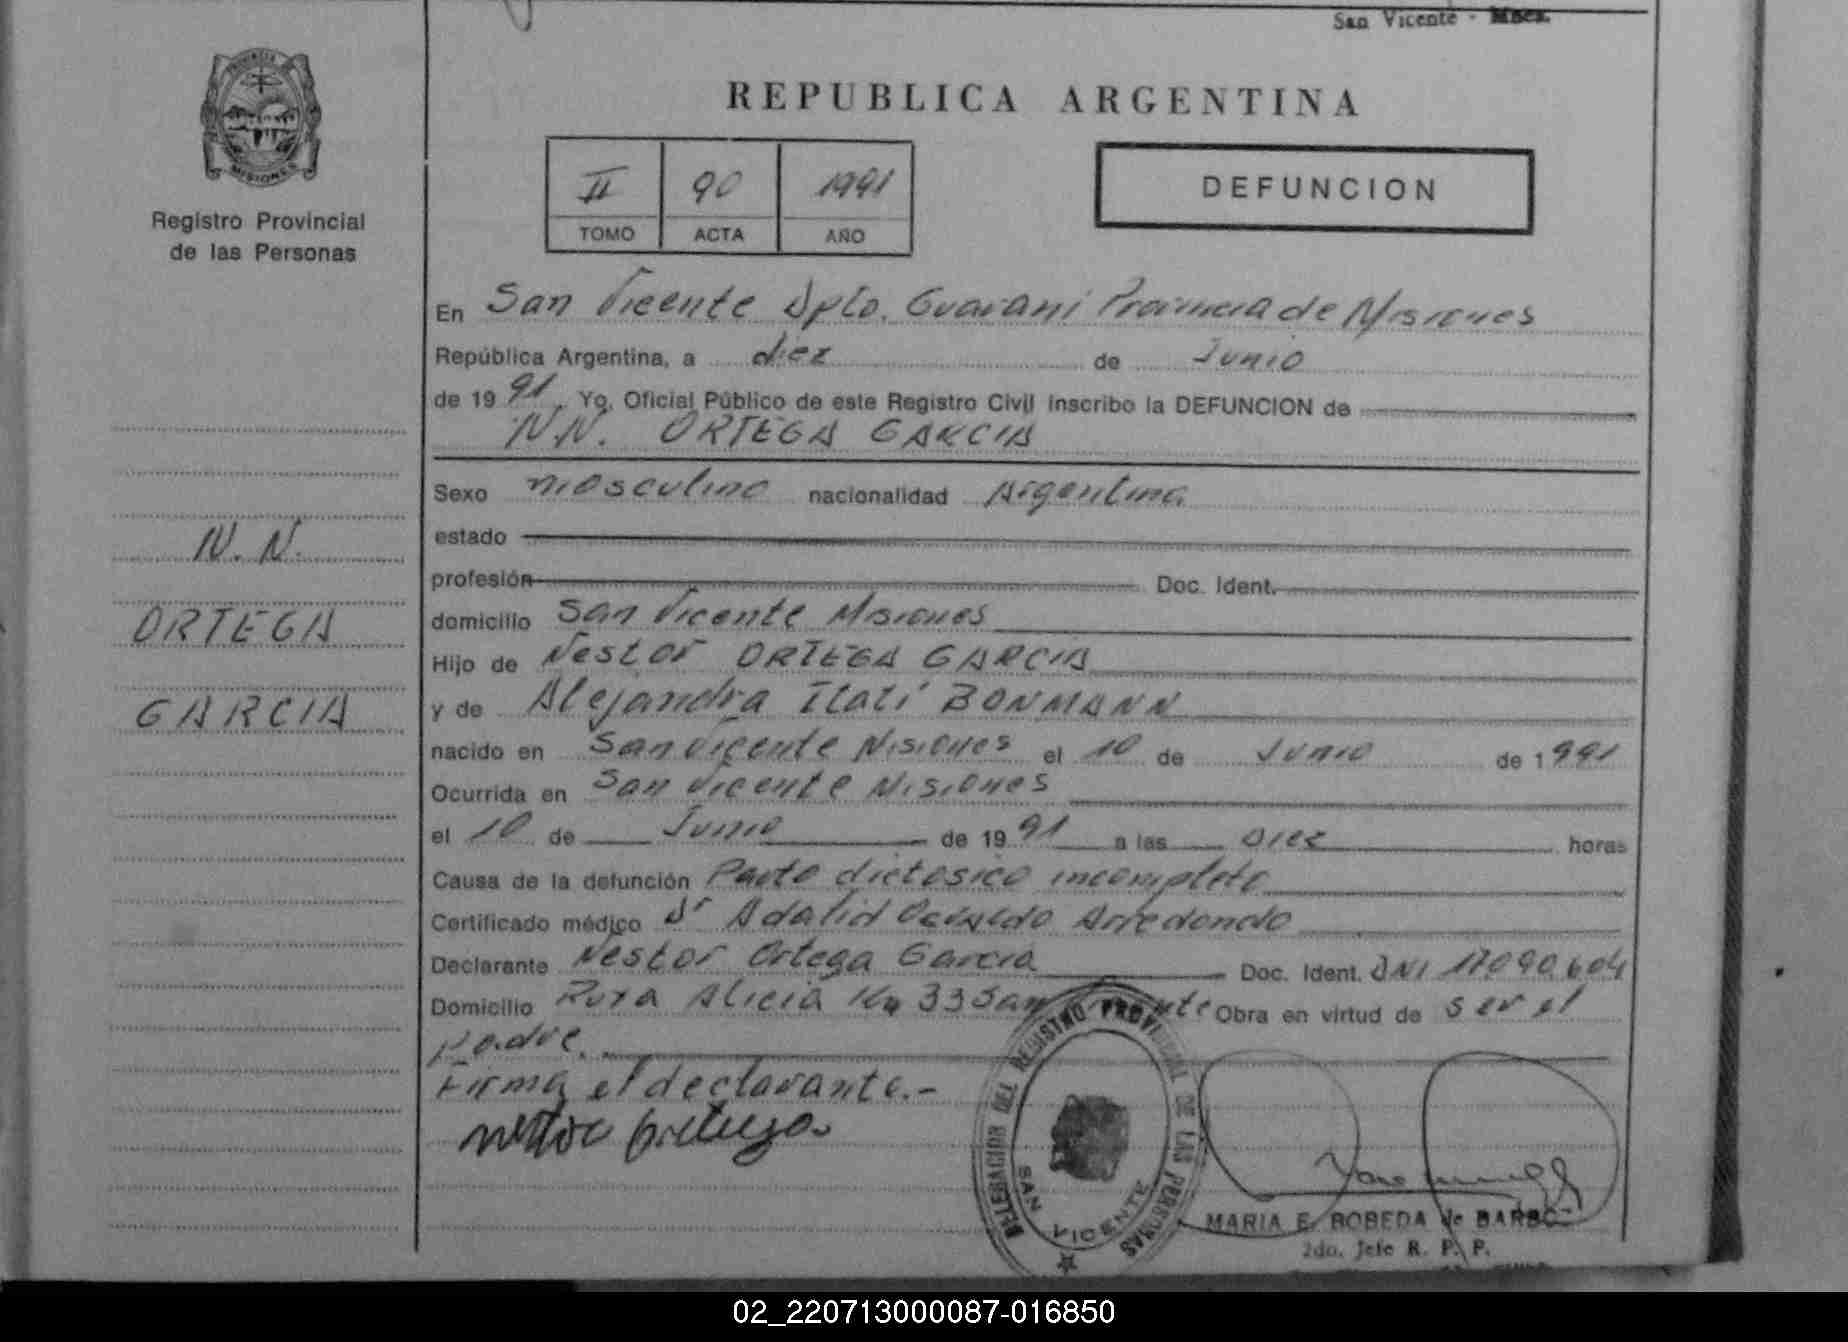 San Vicente - Mnes.
PROVINCIA
MISIONES
Registro Provincial
de las Personas
REPUBLICA ARGENTINA
II 90 1991
TOMO ACTA AÑO
DEFUNCION
En San Vicente Dpto. Guaraní Provincia de Misiones
República Argentina, a diez de Junio
de 1991. Yo, Oficial Público de este Registro Civil inscribo la DEFUNCION de
N.N. ORTEGA GARCIA
Sexo masculino nacionalidad Argentina
estado
profesión Doc. Ident.
domicilio San Vicente Misiones
Hijo de Nestor ORTEGA GARCIA
y de Alejandra Itatí BONMANN
nacido en San Vicente Misiones el 10 de Junio de 1991
Ocurrida en San Vicente Misiones
el 10 de Junio de 1991 a las diez horas
Causa de la defunción Parto dictosico incompleto
Certificado médico Dr Adalid Osvaldo Arredondo
Declarante Nestor Ortega Garcia Doc. Ident. DNI 17.090.604
Domicilio Ruta Alicia Km 33 San Vicente Obra en virtud de ser el
padre.
Firma el declarante.-
Nestor Ortega
N.N.
ORTEGA
GARCIA
DELEGACION DEL REGISTRO PROVINCIAL DE LAS PERSONAS
SAN VICENTE
MARIA E. BOBEDA de BARBO
2do. Jefe R. P. P.
02_220713000087-016850